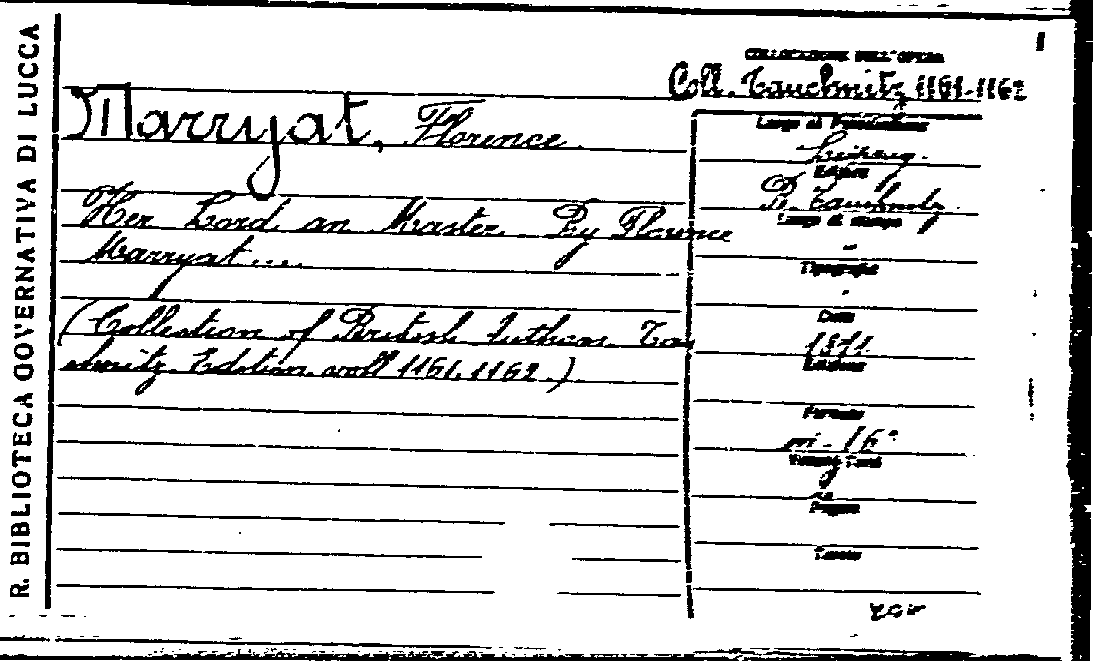 R. BIBLIOTECA GOVERNATIVA DI LUCCA
COLLOCAZIONE DELL'OPERA
Coll. Tauchnitz 1161-1162
Marryat, Florence
Her Lord an Master. By Florence
Marryat....
(Collection of British Authors. Tau
chnitz Edition. voll 1161.1162.)
Luogo di Pubblicazione
Leipzig.
Editore
B. Tauchnitz
Luogo di stampa
Tipografia
Data
1871
Edizione
Formato
in-16°
Volumi, Tomi
2
Pagine
Tavole